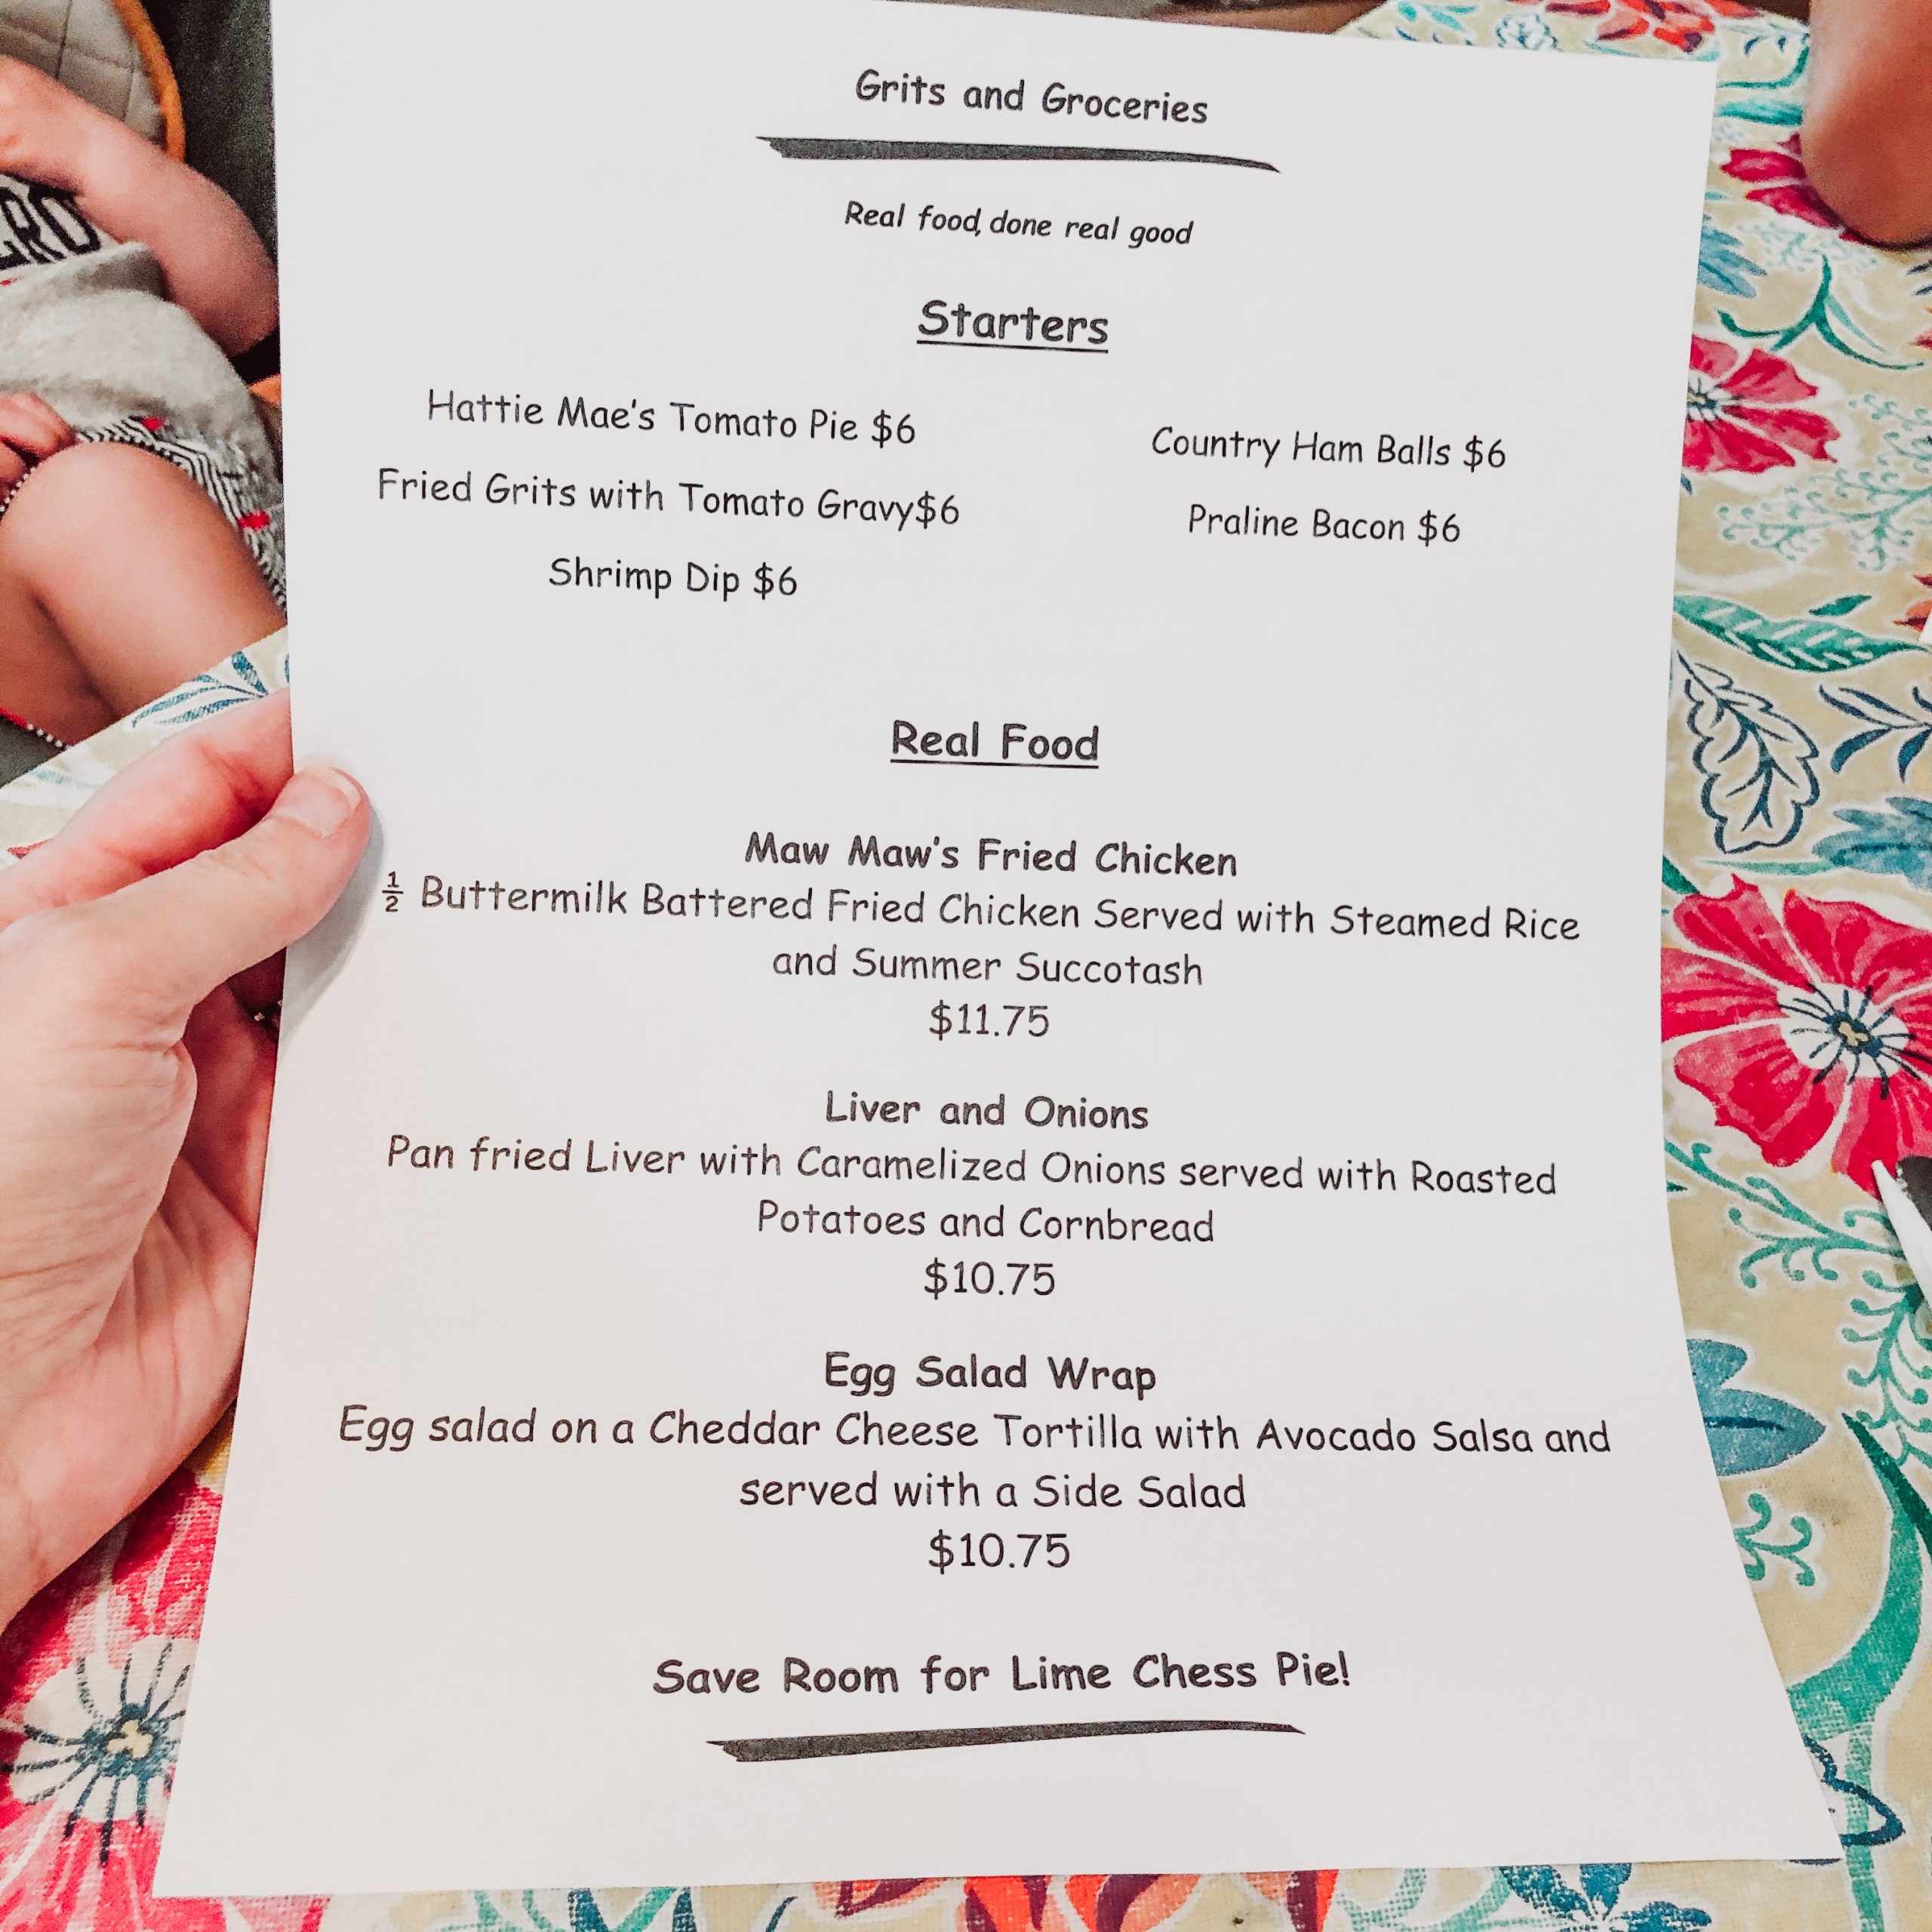 Grits and Groceries
Real food, done real good
Starters
Hattie Mae's Tomato Pie $6
Fried Grits with Tomato Gravy$6
Shrimp Dip $6
Country Ham Balls $6
Praline Bacon $6
Real Food
Maw Maw's Fried Chicken
½ Buttermilk Battered Fried Chicken Served with Steamed Rice
and Summer Succotash
$11.75
Liver and Onions
Pan fried Liver with Caramelized Onions served with Roasted
Potatoes and Cornbread
$10.75
Egg Salad Wrap
Egg salad on a Cheddar Cheese Tortilla with Avocado Salsa and
served with a Side Salad
$10.75
Save Room for Lime Chess Pie!